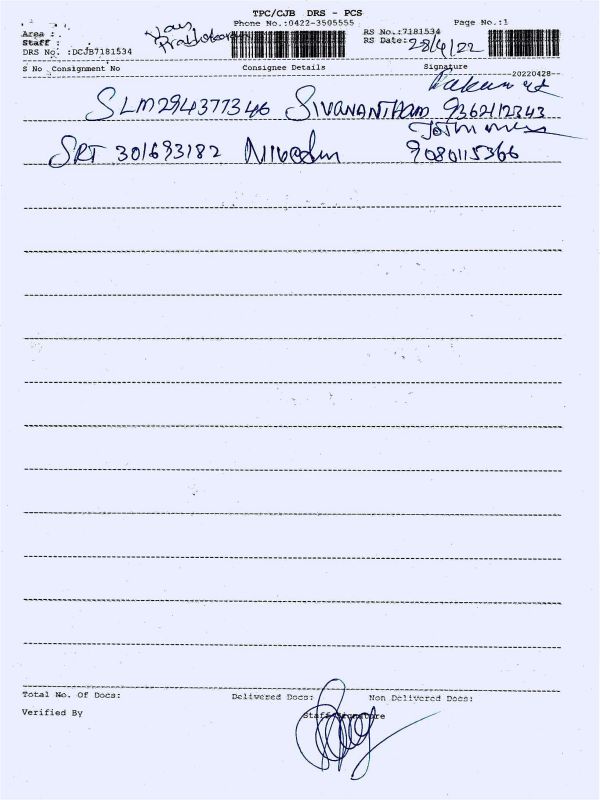 TPC/CJB DRS - PCS
Phone No.:0422-3505555 Page No.:1
Area : RS No.:7181534
Staff : RS Date: 28/4/22
DRS No. :DCJB7181534
S No Consignment No Consignee Details Signature
20220428
SLM294377346 SIVANANTHAM 9362412343
SRT 301693182 9080115366
Total No. Of Docs: Delivered Docs: Non Delivered Docs:
Verified By Staff Signature